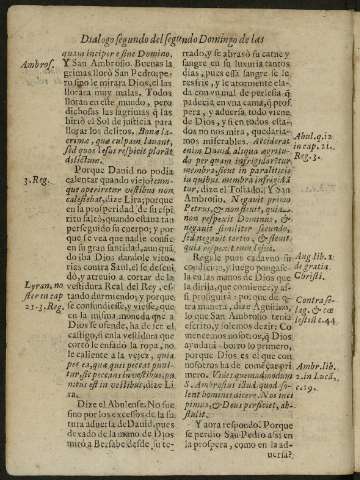 Dialogo segundo del segundo Domingo de las
quam incipere sine Domino.
Ambros.
Y San Ambrosio. Buenas la
grimas lloró San Pedro; pe-
ro si no le mirara Dios, el las
llorára muy malas. Todos
lloran en este mundo, pero
dichosas las lagrimas q̃ las
hirió el Sol de justicia para
llorar los delitos. Bonæ la-
crimæ, quæ culpam lauant,
sed quos Iesus respicit plorãt
delictum.
Porque Dauid no podia
3. Reg.
calentar quando viejo; cum-
que operiretur vestibus non
calefiebat, dize Lira; porque
en la prosperidad de su espi
ritu faltò, quando estaua tan
perseguido su cuerpo; y por
que se vea que nadie conser-
ua su gran santidad, aun quã
do iba Dios dandole vito-
rias contra Saul, el se desnu-
dò, y atreuio a cortar de la
Lyran. no
ster in cap
21. 3. Reg.
vestidura Real del Rey, es-
tando durmiendo; y porque
se confundiesse, y viesse, que
en la misma moneda que a
Dios se ofende, ha de ser el
castigo, ni la vestidura que
cortò le enfadò la ropa, no
le caliente a la vejez, quia
per ea, quæ quis peccat puni-
tur, sic peccans in vestibus, pu
nitus est in vestibus, dize Li
ra.
Dize el Abulense. No fue
sino por los excessos de la sol
tura aduerta de Dauid, pues
dexado de la mano de Dios
mirò a Bersabe desde su te-
rrado, y se abrasò su carne y
sangre en su luxuria tantos
dias, pues essa sangre se le
resfrie, y le atormente ela-
da con vn mal de perlesia q̃
padecia en vna cama, q̃ pros-
pera, y aduersa, todo viene
de Dios, y si en todos esta-
dos no nos mira, quedaria-
Abul. q. 12
in cap. 21.
Reg. 3.
mos miserables. Acciderat
enim Dauid aliqua ægritu-
do per quam infrigidaretur
membra, sicut in paraliticis
in quibus membra infrigidã
tur, dize el Tostado. Y San
Ambrosio. Negauit primo
Petrus, & non fleuit, quia
non respexit Dominus, &
negauit similiter secundo,
sed negauit tertio, & fleuit
quia respexit eum Iesus.
Regale pues cada vno su
Aug. lib. 1
de gratia
Christi.
condicion, y luego pongase-
la en las manos de Dios que
la dirija, que comience, y as-
si prosiguirà: porque de o-
tra manera, dize Agustino,
Contra Pe-
lag. & cœ
lestiũ c. 44.
lo que San Ambrosio tenia
escrito, y solemos dezir: Co
mencemos nosotros, q̃ Dios
ayudarà, borro lo primero;
porque Dios es el que con
nosotros ha de començar pri
Ambr. lib.
2. in Luca,
c. 19.
mero. Vides quemadmodum
S. Ambrosius illud, quod so-
lent homines dicere. Nos inci
pimus, & Deus perficiet, ab-
stulit.
Y aora respondo. Porque
se perdio San Pedro assi en
la prospera, como en la ad-
uersa?